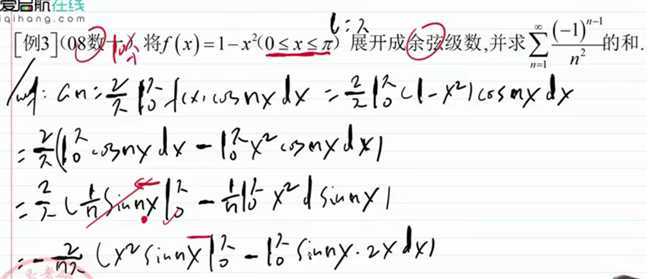 爱启航在线
qihang.com
l = π
[例3](08数一) 将f(x)=1−x²(0≤x≤π) 展开成余弦级数,并求∑_{n=1}^{∞} (-1)^{n-1}/n² 的和.
an = 2/π ∫₀^π f(x) cos nx dx = 2/π ∫₀^π (1−x²) cos nx dx
= 2/π (∫₀^π cos nx dx − ∫₀^π x² cos nx dx)
= 2/π (1/n sin nx |₀^π − 1/n ∫₀^π x² d sin nx)
= − 2/nπ (x² sin nx |₀^π − ∫₀^π sin nx · 2x dx)